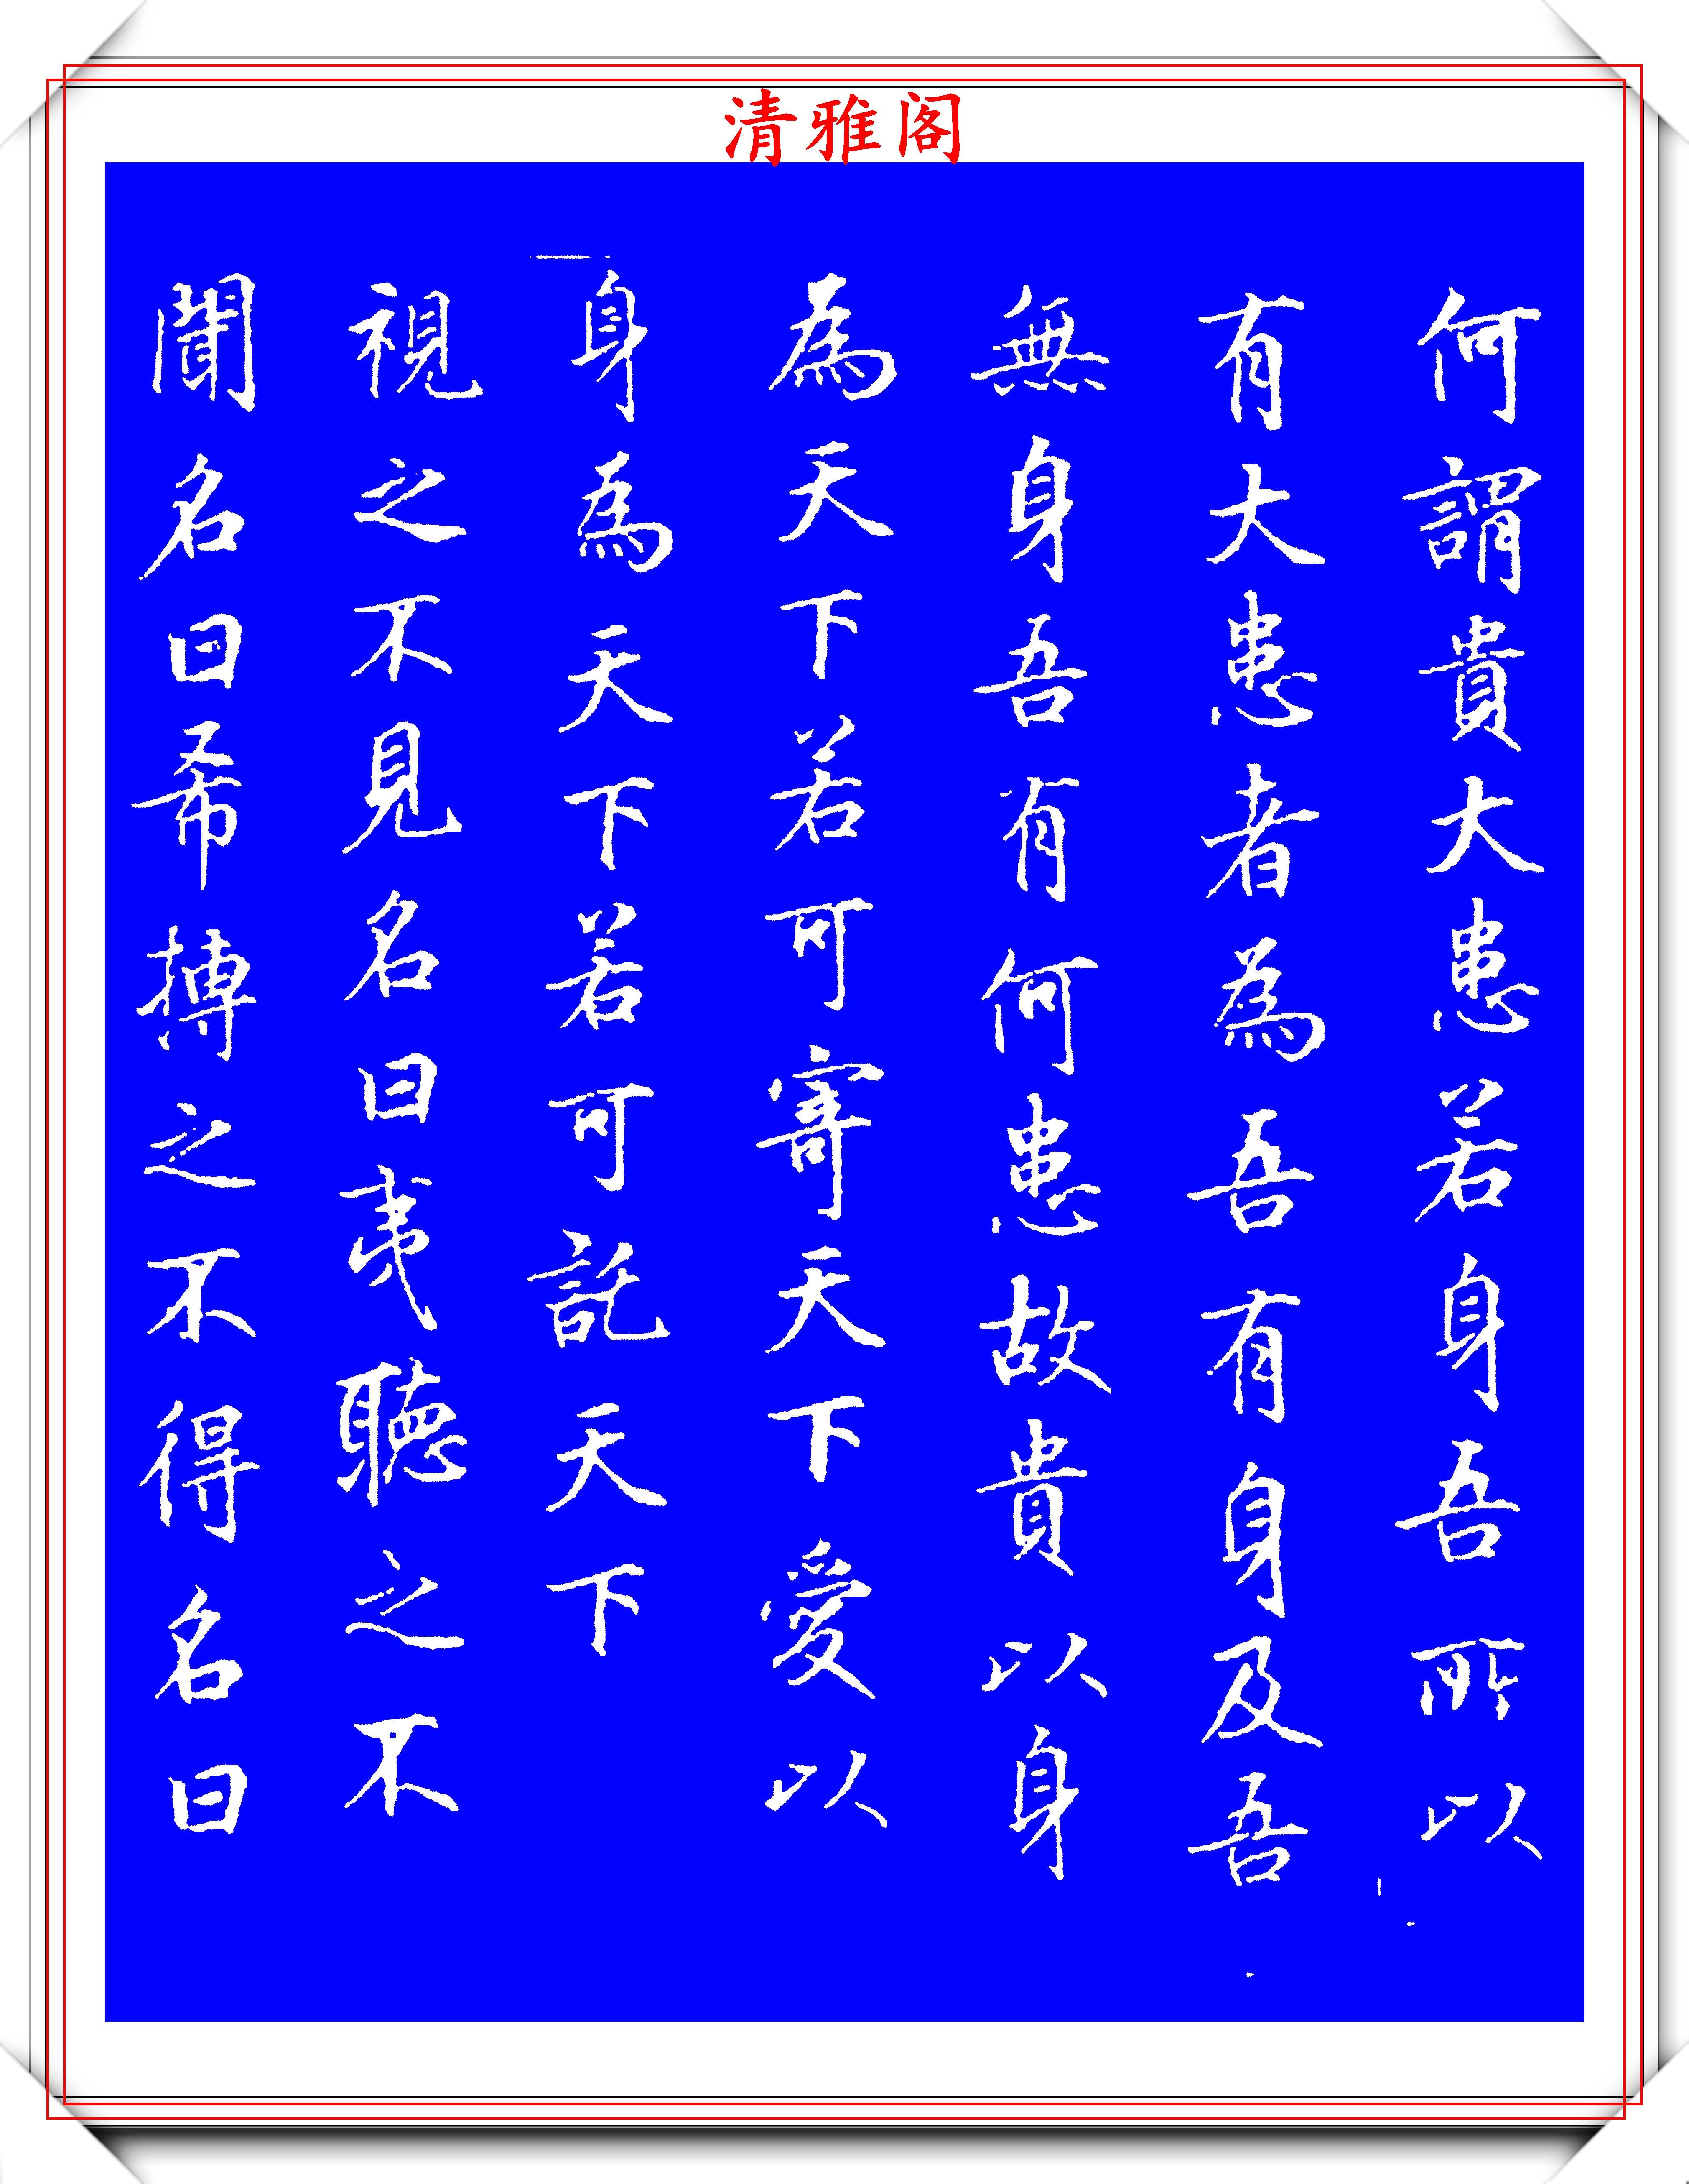 清雅阁
何謂貴大患若身吾所以
有大患者為吾有身及吾
無身吾有何患故貴以身
為天下若可寄天下愛以
身為天下若可託天下
視之不見名曰夷聽之不
聞名曰希搏之不得名曰